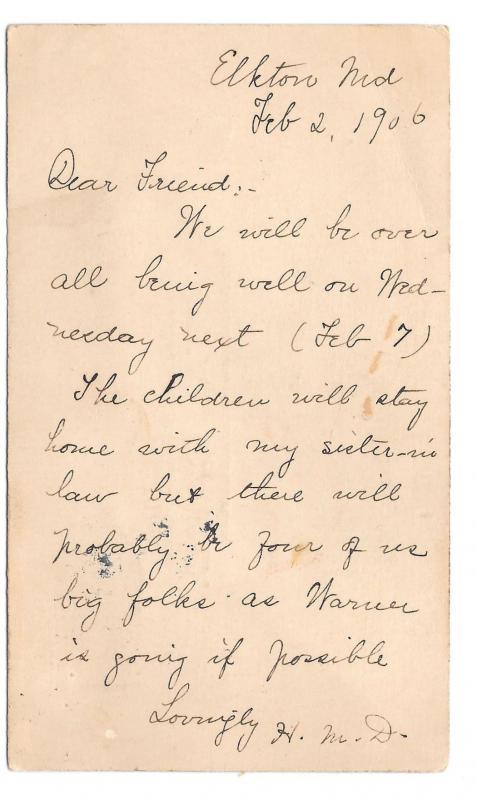 Elkton Md
Feb 2, 1906
Dear Friend:-
We will be over
all being well on Wed-
nesday next (Feb 7)
The children will stay
home with my sister-in
law but there will
probably be four of us
big folks as Warner
is going if possible
Lovingly H. M. D.